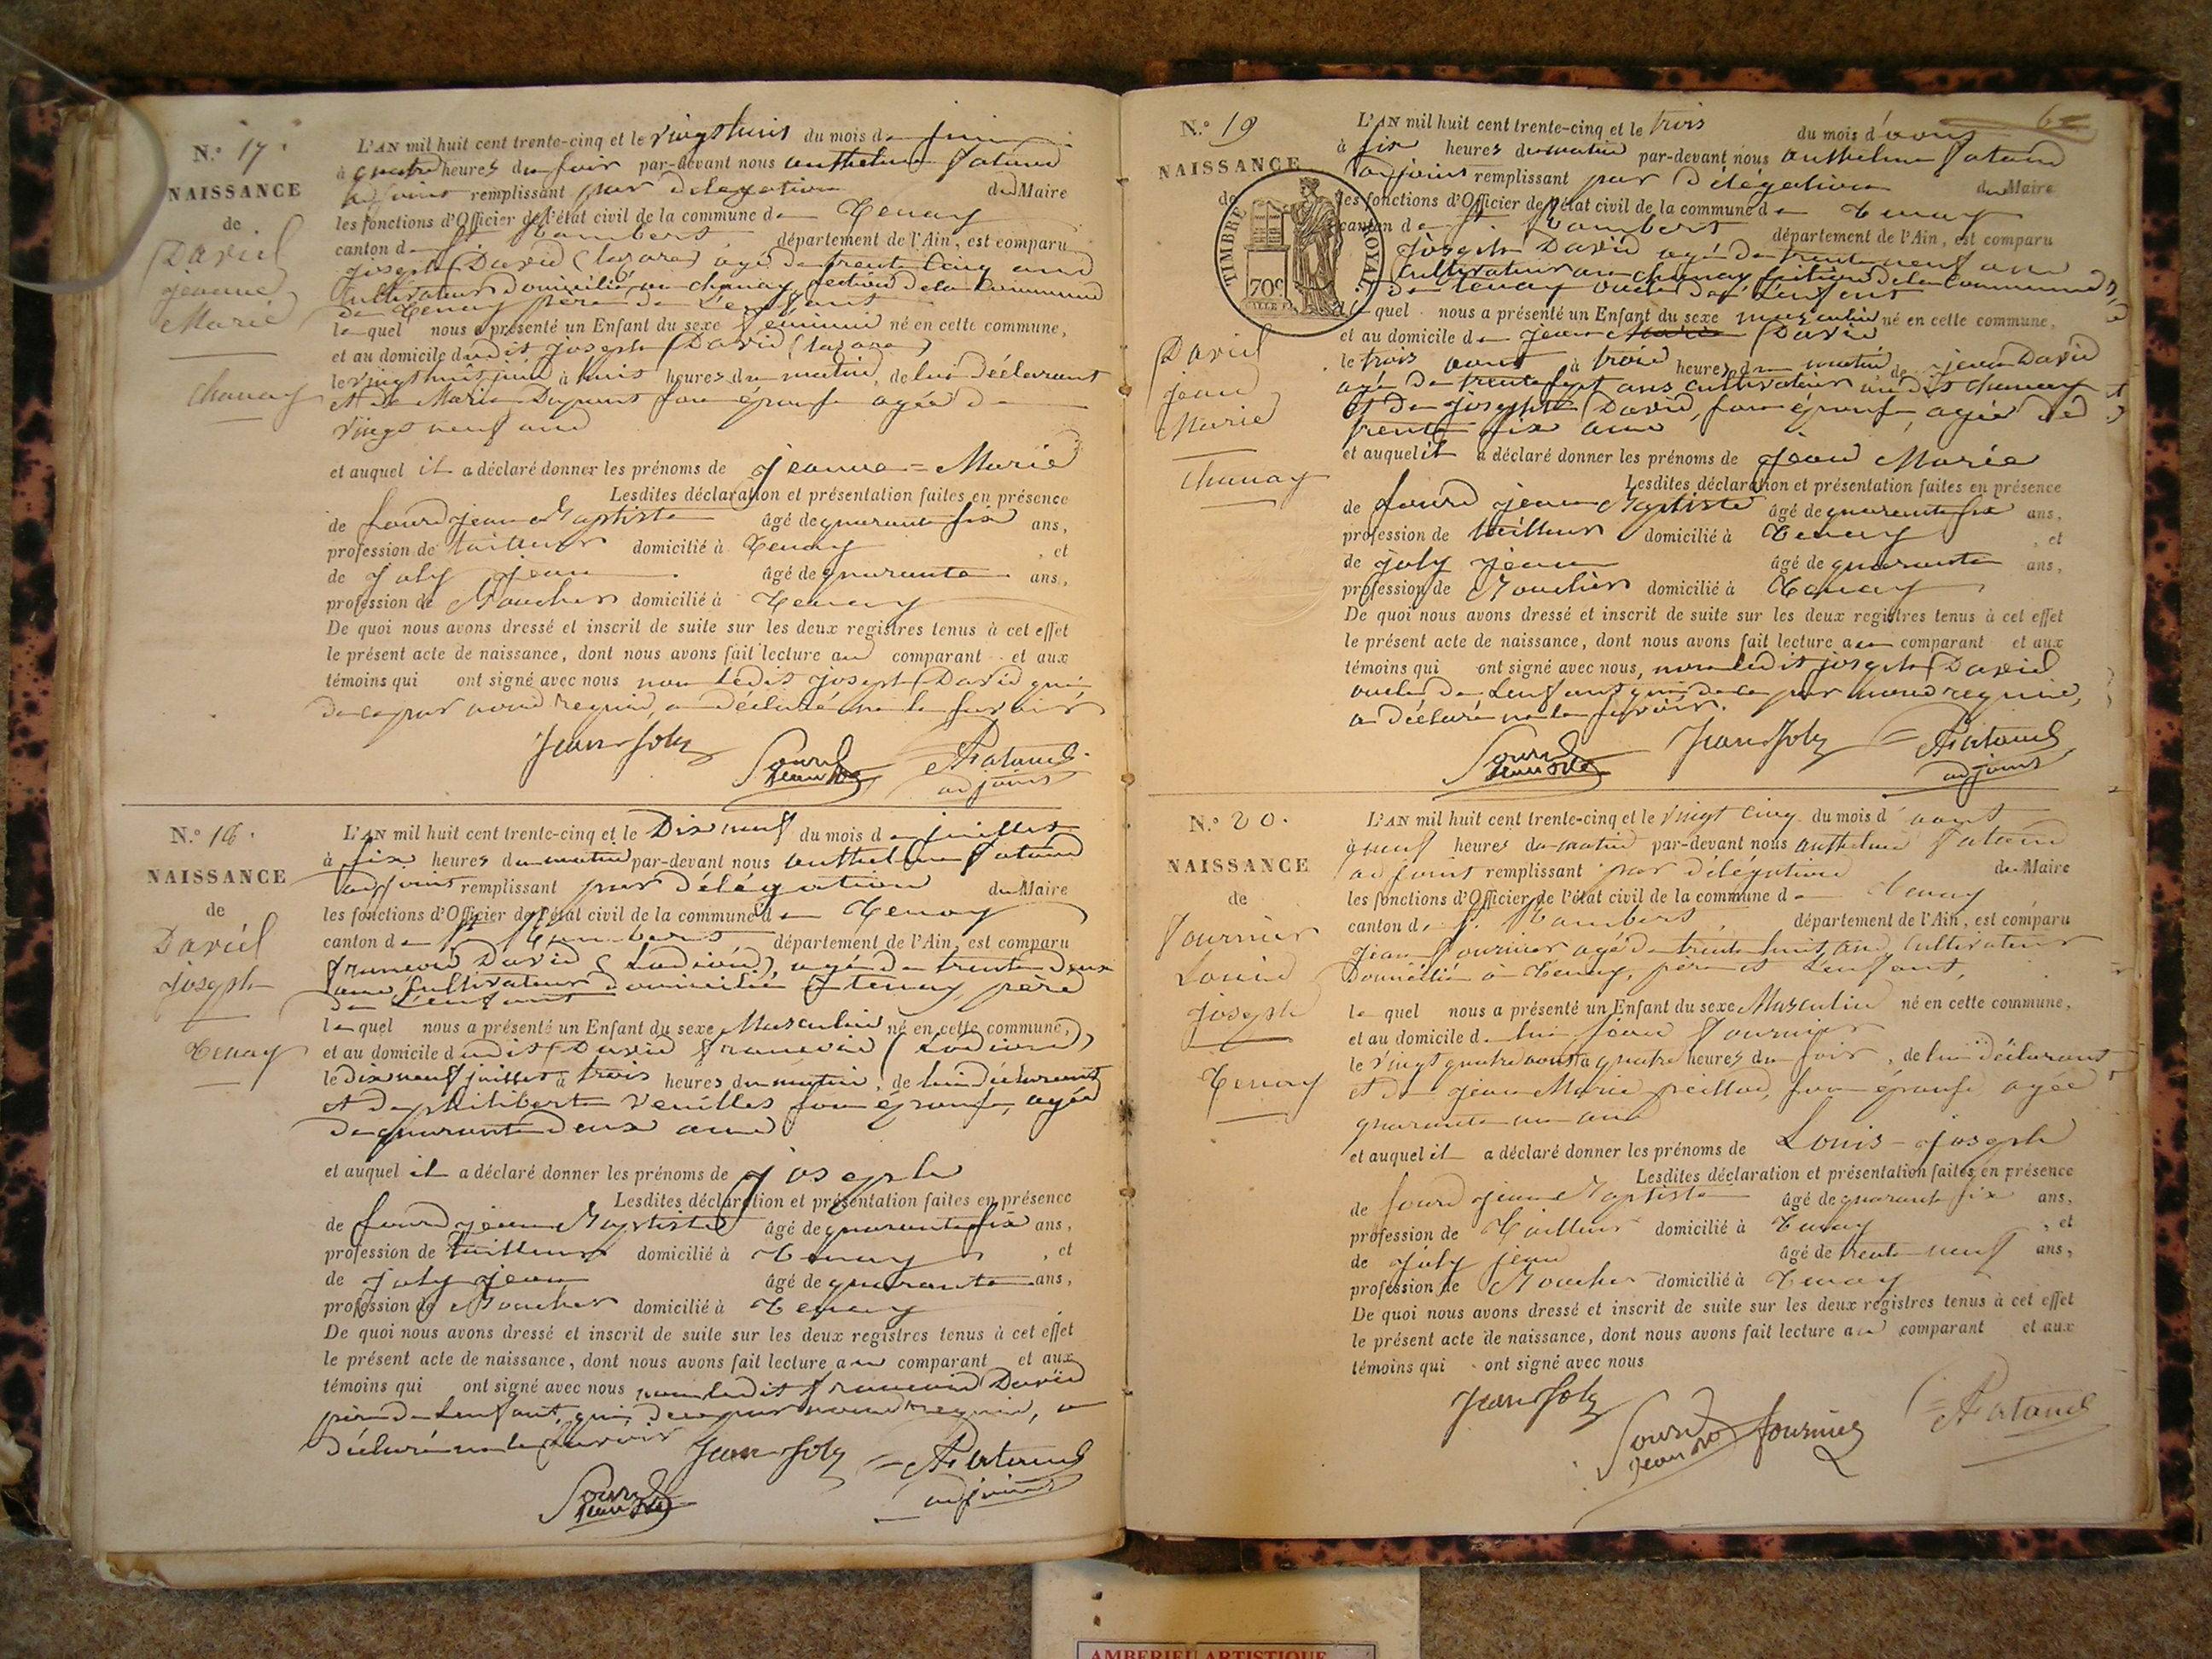 N.° 17.
NAISSANCE
de
David
jeanne
Marie
Chanay
L'AN mil huit cent trente-cinq et le vingt huit du mois de juin
à quatre heures du soir par-devant nous anthelme
adjoint remplissant par délégation du Maire
les fonctions d'Officier de l'état civil de la commune de Tenay
canton de St Rambert département de l'Ain, est comparu
joseph David (lazare) agé de trente cinq ans
Cultivateur domicilié au chanay section de la Commune
de Tenay père de L'enfant
lequel nous a présenté un Enfant du sexe féminin né en cette commune,
et au domicile dudit joseph David (lazare)
le vingt huit juin à huit heures du matin, de lui déclarant
et de Marie Dupont son épouse agée de
vingt neuf ans
et auquel il a déclaré donner les prénoms de jeanne = Marie
Lesdites déclaration et présentation faites en présence
de sourd jean Baptiste âgé de quarante six ans,
profession de tailleur domicilié à Tenay, et
de joly jean âgé de quarante ans,
profession de Boucher domicilié à Tenay
De quoi nous avons dressé et inscrit de suite sur les deux registres tenus à cet effet
le présent acte de naissance, dont nous avons fait lecture au comparant et aux
témoins qui ont signé avec nous non ledit joseph David qui
de ce par nous requis, a déclaré ne le savoir
Jean Joly Sourd Jean Bte
adjoint
N.° 18.
NAISSANCE
de
David
joseph
Tenay
L'AN mil huit cent trente-cinq et le Dix neuf du mois de juillet
à six heures du matin par-devant nous anthelme
adjoint remplissant par délégation du Maire
les fonctions d'Officier de l'état civil de la commune de Tenay
canton de St Rambert département de l'Ain, est comparu
francois David agé de trente deux
ans Cultivateur domicilié à tenay père
de L'enfant
lequel nous a présenté un Enfant du sexe Masculin né en cette commune,
et au domicile dudit David francois
le dix neuf juillet à trois heures du matin, de lui déclarant
et de philiberte son épouse, agée
de quarante deux ans
et auquel il a déclaré donner les prénoms de joseph
Lesdites déclaration et présentation faites en présence
de sourd jean Baptiste âgé de quarante six ans,
profession de tailleur domicilié à Tenay, et
de joly jean âgé de quarante ans,
profession de Boucher domicilié à Tenay
De quoi nous avons dressé et inscrit de suite sur les deux registres tenus à cet effet
le présent acte de naissance, dont nous avons fait lecture au comparant et aux
témoins qui ont signé avec nous non ledit francois David
père de L'enfant, qui, de ce par nous requis, a
déclaré ne le savoir Jean Joly
Sourd Jean Bte adjoint
N.° 19
NAISSANCE
de
TIMBRE ROYAL
70c
David
jean
Marie
Chanay
L'AN mil huit cent trente-cinq et le trois du mois d'aout
à six heures du matin par-devant nous anthelme
adjoint remplissant par délégation du Maire
les fonctions d'Officier de l'état civil de la commune de Tenay
canton de St. Rambert département de l'Ain, est comparu
joseph David agé de trente neuf ans
Cultivateur au chanay section de la Commune
de tenay oncle de L'enfant
lequel nous a présenté un Enfant du sexe masculin né en cette commune,
et au domicile de jean Marie David
le trois aout à trois heures du matin de jean David
agé de trente sept ans cultivateur audit chanay
et de josephte David, son épouse, agée de
trente six ans
et auquel il a déclaré donner les prénoms de jean Marie
Lesdites déclaration et présentation faites en présence
de sourd jean Baptiste âgé de quarante six ans,
profession de tailleur domicilié à Tenay, et
de joly jean âgé de quarante ans,
profession de Boucher domicilié à Tenay
De quoi nous avons dressé et inscrit de suite sur les deux registres tenus à cet effet
le présent acte de naissance, dont nous avons fait lecture au comparant et aux
témoins qui ont signé avec nous, non ledit joseph David
oncle de L'enfant qui, de ce par nous requis,
a déclaré ne le savoir.
Sourd Jean Bte Jean Joly
adjoint
N.° 20.
NAISSANCE
de
Fournier
Louis
joseph
Tenay
L'AN mil huit cent trente-cinq et le vingt cinq du mois d'aout
à neuf heures du matin par-devant nous anthelme
adjoint remplissant par délégation du Maire
les fonctions d'Officier de l'état civil de la commune de Tenay
canton de St. Rambert, département de l'Ain, est comparu
jean fournier agé de trente huit ans, Cultivateur
Domicilié à Tenay, père de L'enfant,
lequel nous a présenté un Enfant du sexe Masculin né en cette commune,
et au domicile de lui jean fournier
le vingt quatre aout à quatre heures du soir, de lui déclarant
et de jeane Marie son épouse agée
quarante un ans
et auquel il a déclaré donner les prénoms de Louis - joseph
Lesdites déclaration et présentation faites en présence
de sourd jean Baptiste âgé de quarante six ans,
profession de Tailleur domicilié à Tenay, et
de joly jean âgé de trente neuf ans,
profession de Boucher domicilié à Tenay
De quoi nous avons dressé et inscrit de suite sur les deux registres tenus à cet effet
le présent acte de naissance, dont nous avons fait lecture au comparant et aux
témoins qui ont signé avec nous
Jean Joly Sourd Jean Bte fournier
AMBERIEU ARTISTIQUE